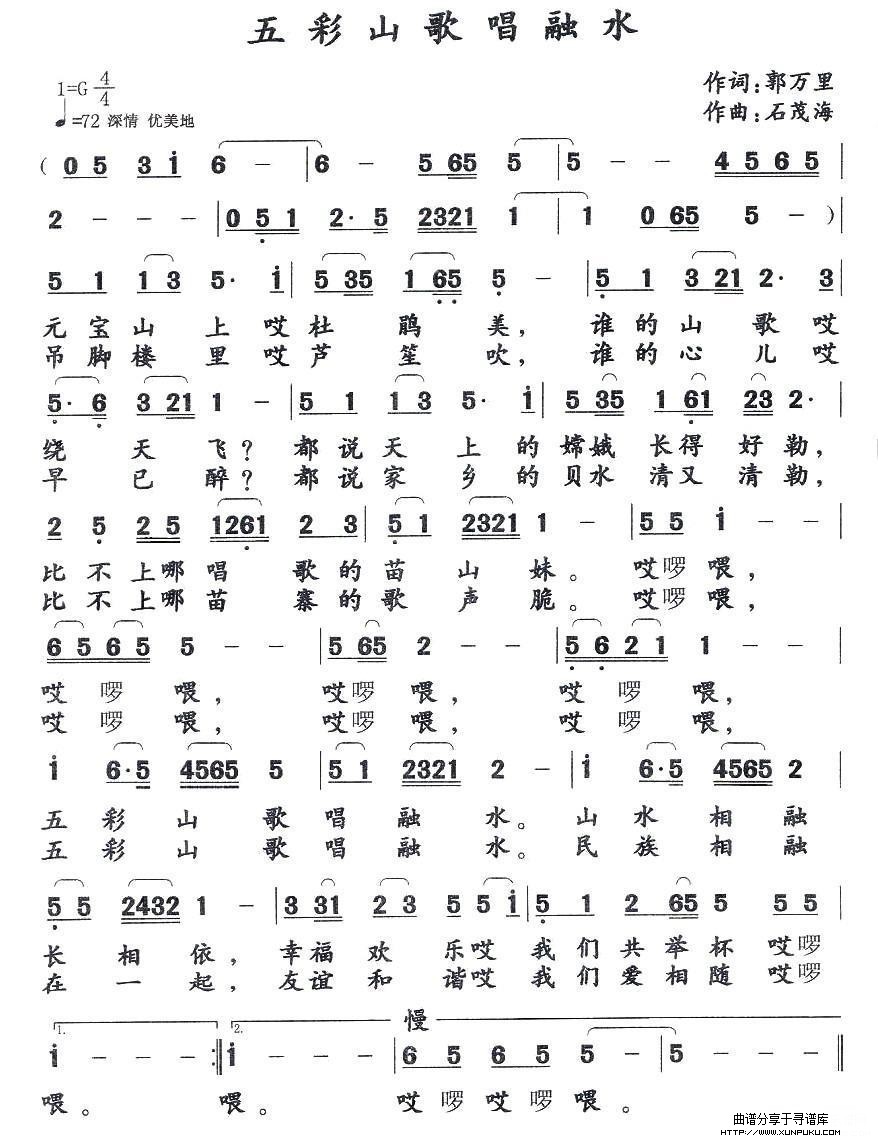 五彩山歌唱融水
1=G 4/4
作词:郭万里
♩=72 深情 优美地
作曲:石茂海
( 0 5 3 i 6 - | 6 - 5 65 5 | 5 - - 4 5 6 5 |
2 - - - | 0 5 1 2· 5 2321 1 | 1 0 65 5 - ) |
5 1 1 3 5· i | 5 35 1 65 5 - | 5 1 3 21 2· 3
元宝山上哎杜鹃美,谁的山歌哎
吊脚楼里哎芦笙吹,谁的心儿哎
5· 6 3 21 1 - | 5 1 1 3 5· i | 5 35 1 61 23 2· |
绕天飞?都说天上的嫦娥长得好勒,
早已醉?都说家乡的贝水清又清勒,
2 5 2 5 1261 2 3 | 5 1 2321 1 - | 5 5 i - |
比不上哪唱歌的苗山妹。哎啰喂,
比不上哪苗寨的歌声脆。哎啰喂,
6 5 6 5 5 - - | 5 65 2 - - | 5 6 2 1 1 - - |
哎啰喂,哎啰喂,哎啰喂,
哎啰喂,哎啰喂,哎啰喂,
i 6·5 4565 5 | 5 1 2321 2 - | i 6·5 4565 2 |
五彩山歌唱融水。山水相融
五彩山歌唱融水。民族相融
5 5 2432 1 - | 3 31 2 3 5 5 i | 5 1 2 65 5 5 5 |
长相依,幸福欢乐哎我们共举杯哎啰
在一起,友谊和谐哎我们爱相随哎啰
1. 2. 慢
i - - - :‖ i - - - | 6 5 6 5 5 | 5 - - - ‖
喂。喂。哎啰哎啰喂。
曲谱分享于寻谱库
HTTP://WWW.XUNPUKU.COM